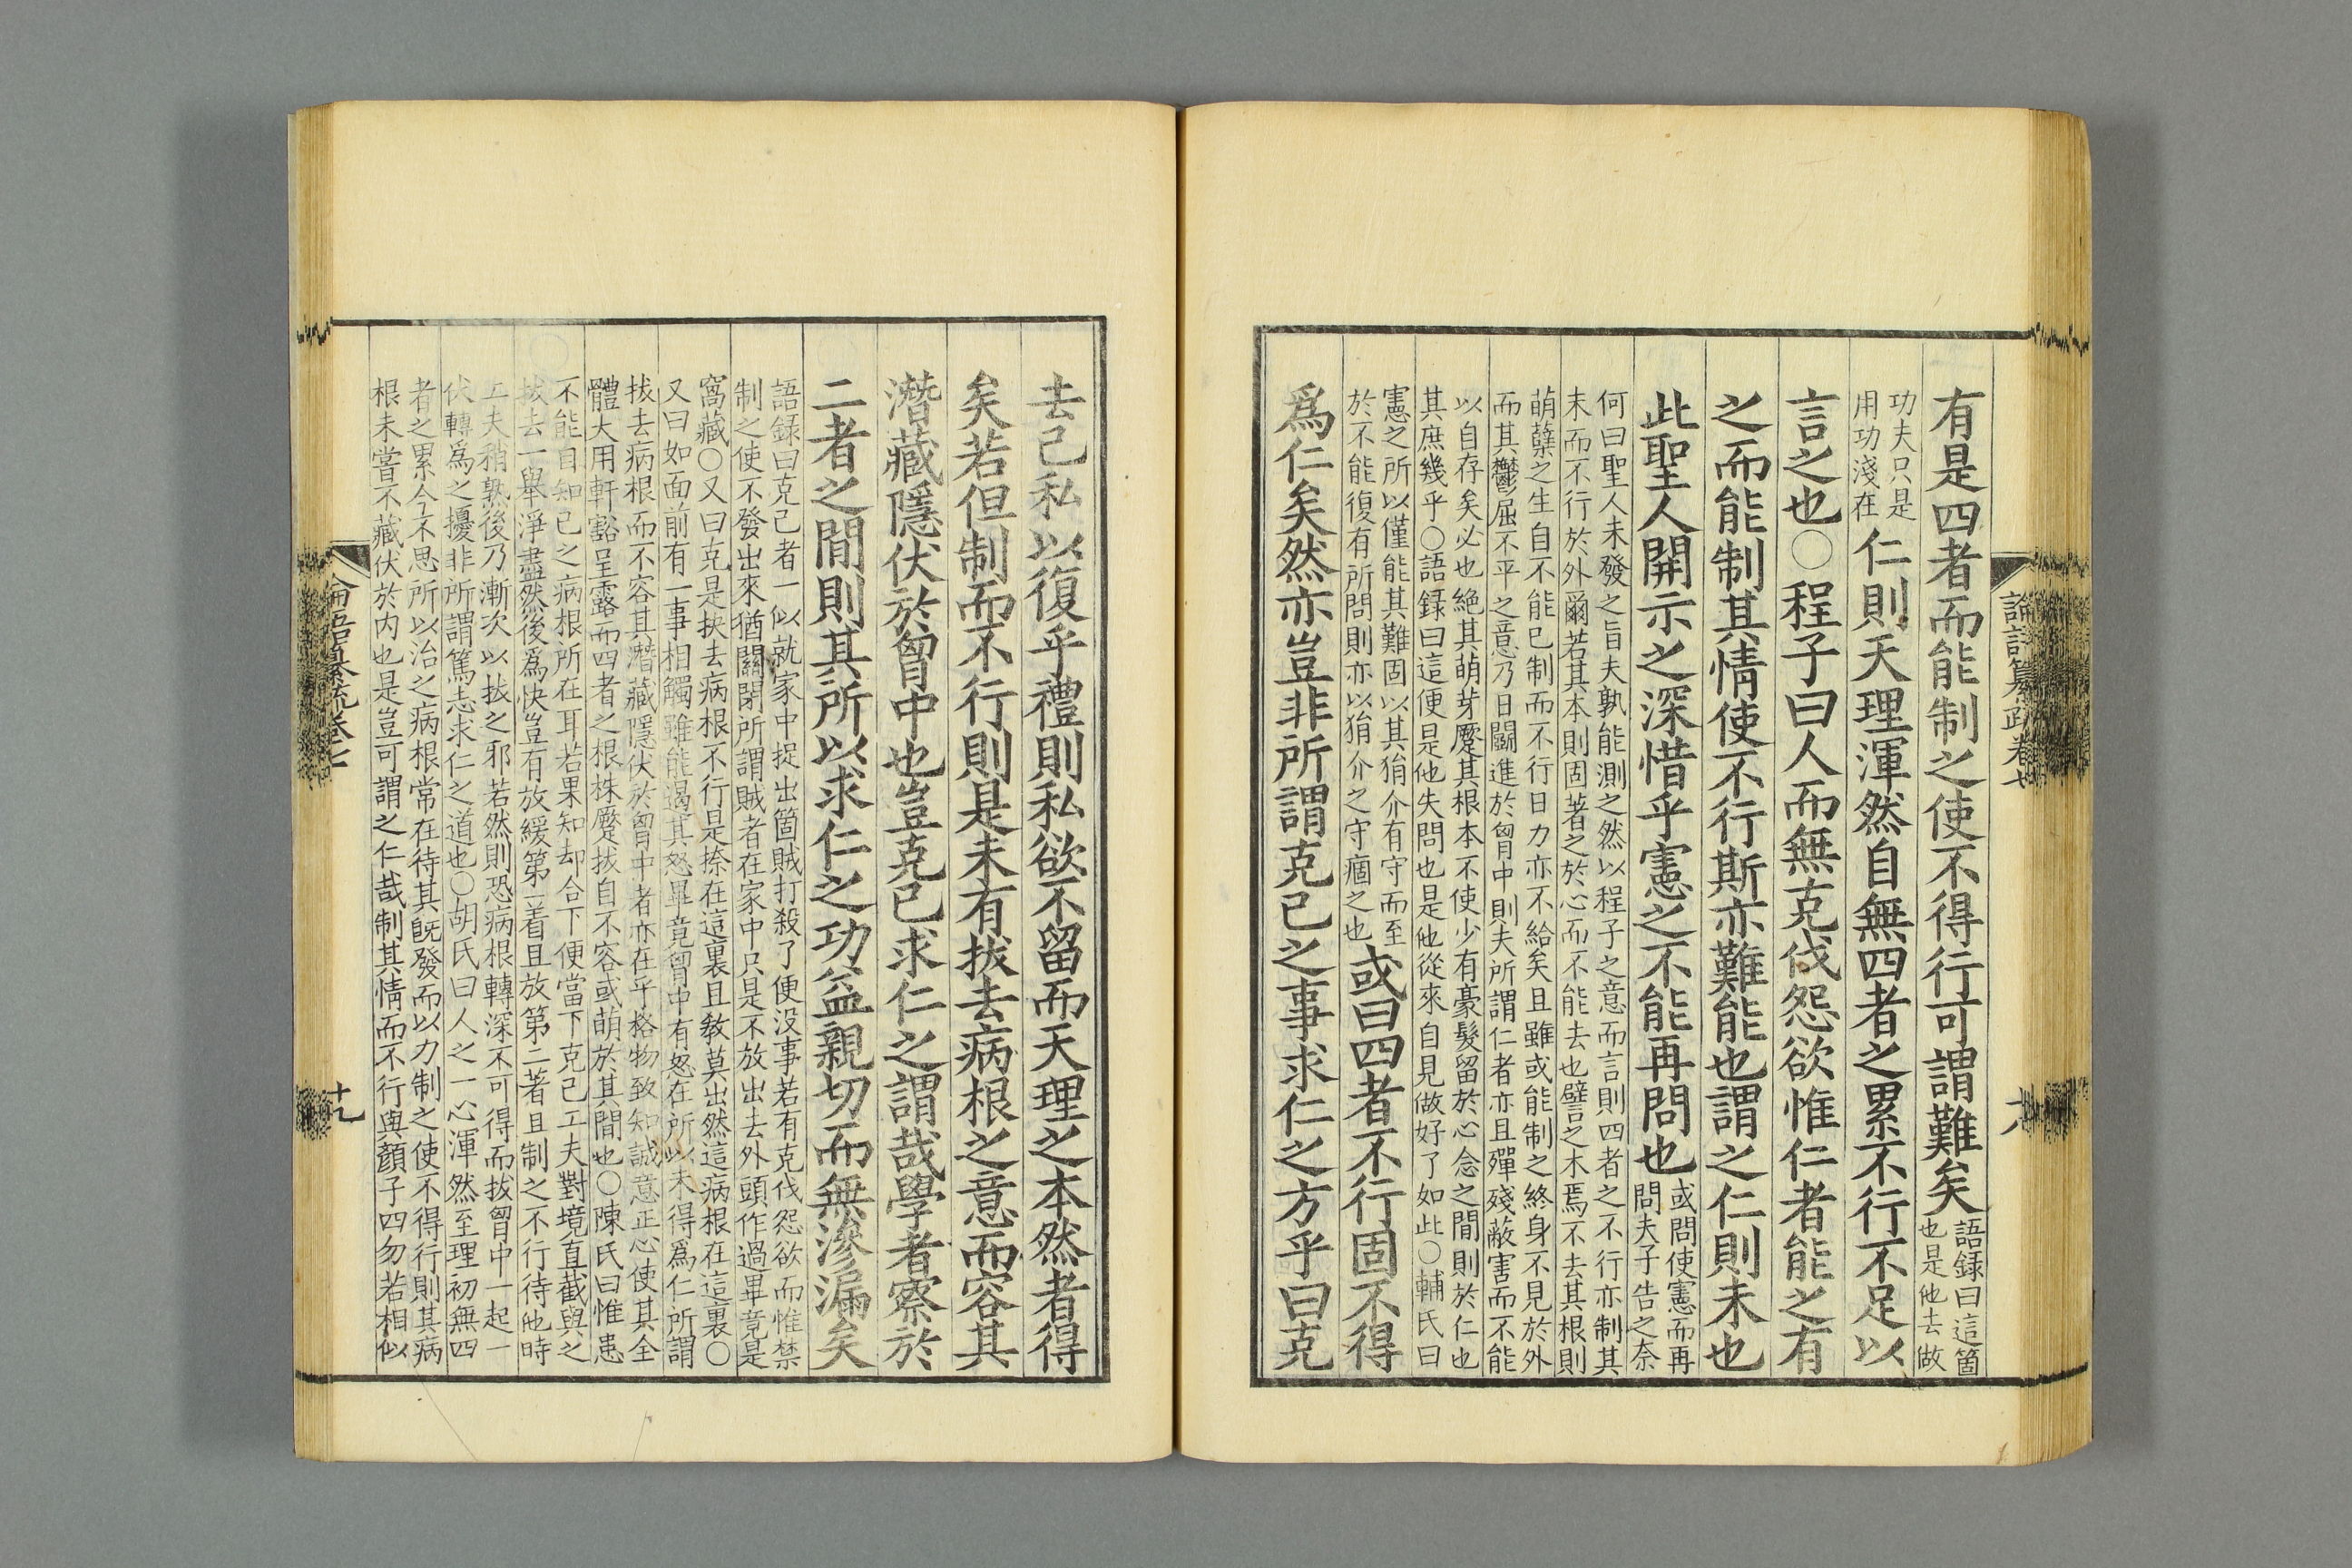 論語纂疏卷七
十八
有是四者而能制之使不得行可謂難矣語錄曰這箇也是他去做
功夫只是用功淺在仁則天理渾然自無四者之累不行不足以
言之也○程子曰人而無克伐怨欲惟仁者能之有
之而能制其情使不行斯亦難能也謂之仁則未也
此聖人開示之深惜乎憲之不能再問也或問使憲而再問夫子告之奈
何曰聖人未發之旨夫孰能測之然以程子之意而言則四者之不行亦制其
末而不行於外爾若其本則固著之於心而不能去也譬之木焉不去其根則
萌蘗之生自不能已制而不行日力亦不給矣且雖或能制之終身不見於外
而其鬱屈不平之意乃日鬬進於胷中則夫所謂仁者亦且殫殘蔽害而不能
以自存矣必也絶其萌芽蹙其根本不使少有豪髮留於心念之間則於仁也
其庶幾乎○語錄曰這便是他失問也是他從來自見做好了如此○輔氏曰
憲之所以僅能其難固以其狷介有守而至
於不能復有所問則亦以狷介之守痼之也或曰四者不行固不得
爲仁矣然亦豈非所謂克己之事求仁之方乎曰克
去己私以復乎禮則私欲不留而天理之本然者得
矣若但制而不行則是未有拔去病根之意而容其
潛藏隱伏於胷中也豈克己求仁之謂哉學者察於
二者之間則其所以求仁之功益親切而無滲漏矣
語錄曰克己者一似就家中捉出箇賊打殺了便没事若有克伐怨欲而惟禁
制之使不發出來猶關閉所謂賊者在家中只是不放出去外頭作過畢竟是
窩藏○又曰克是抉去病根不行是捺在這裏且教莫出然這病根在這裏○
又曰如面前有一事相觸雖能遏其怒畢竟胷中有怒在所以未得爲仁所謂
拔去病根而不容其潛藏隱伏於胷中者亦在乎格物致知誠意正心使其全
體大用軒豁呈露而四者之根株蹙拔自不容或萌於其間也○陳氏曰惟患
不能自知己之病根所在耳若果知却合下便當下克己工夫對境直截與之
拔去一舉淨盡然後爲快豈有放緩第一着且放第二著且制之不行待他時
工夫稍熟後乃漸次以拔之邪若然則恐病根轉深不可得而拔胷中一起一
伏轉爲之擾非所謂篤志求仁之道也○胡氏曰人之一心渾然至理初無四
者之累今不思所以治之病根常在待其既發而以力制之使不得行則其病
根未嘗不藏伏於内也是豈可謂之仁哉制其情而不行與顏子四勿若相似
論語纂疏卷七
十九